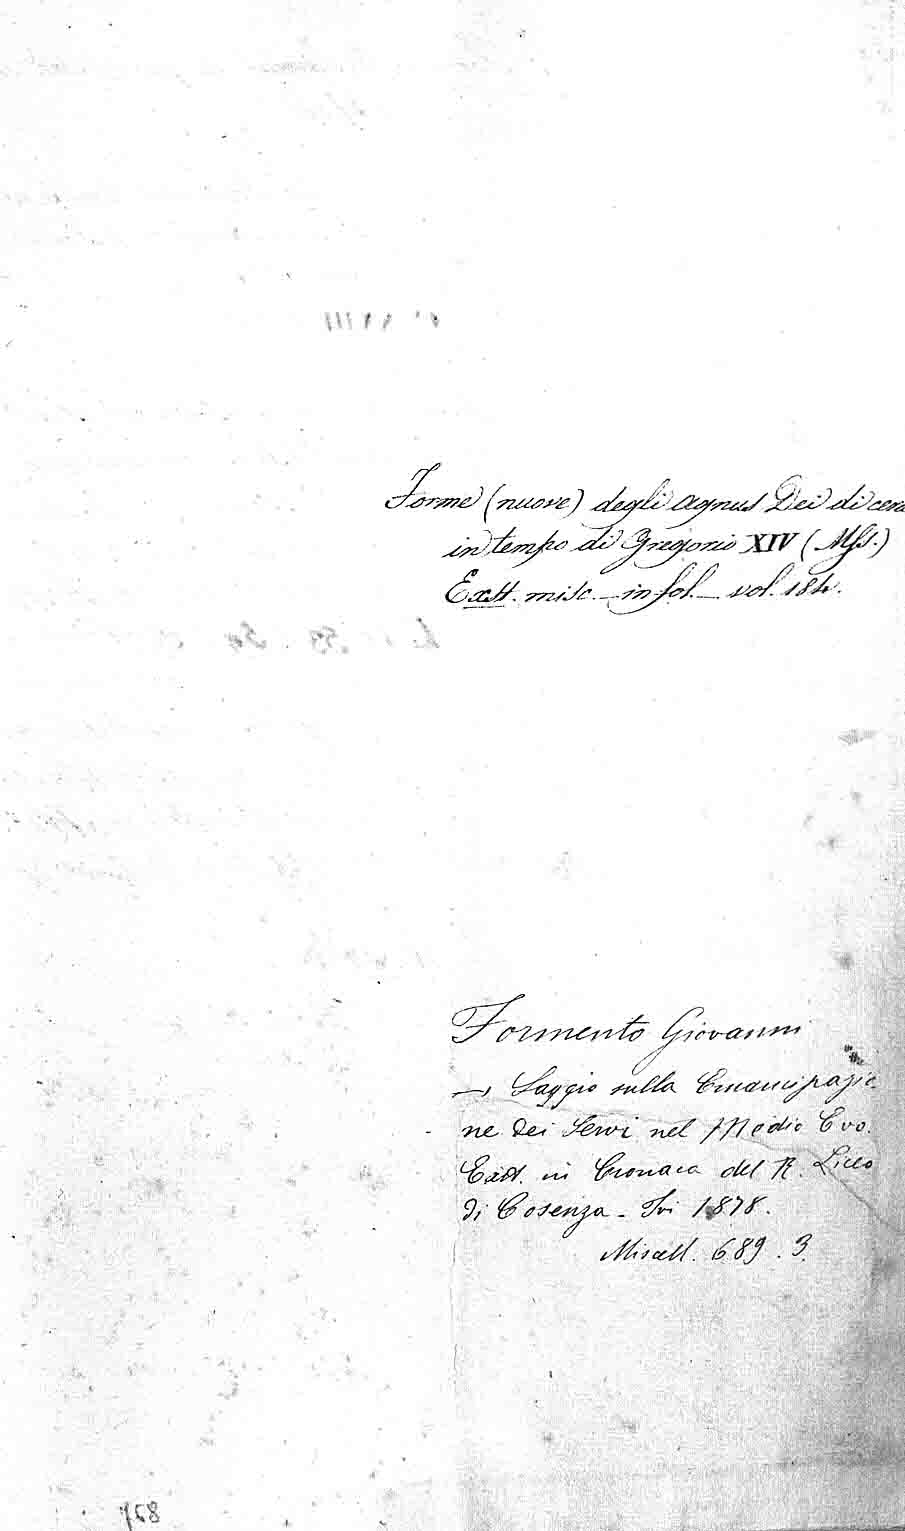 Forme (nuove) degli Agnus Dei di cera
in tempo di Gregorio XIV (Mss.)
Exst. misc. - in fol. - vol. 184.
Formento Giovanni
— Saggio sulla Emancipazio
ne dei Servi nel Medio Evo.
Exst. in Cronaca del R. Liceo
di Cosenza - Ivi 1878.
Miscell. 689. 3.